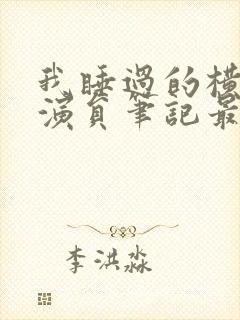 我睡過的橫
演員筆記最
李洪淼